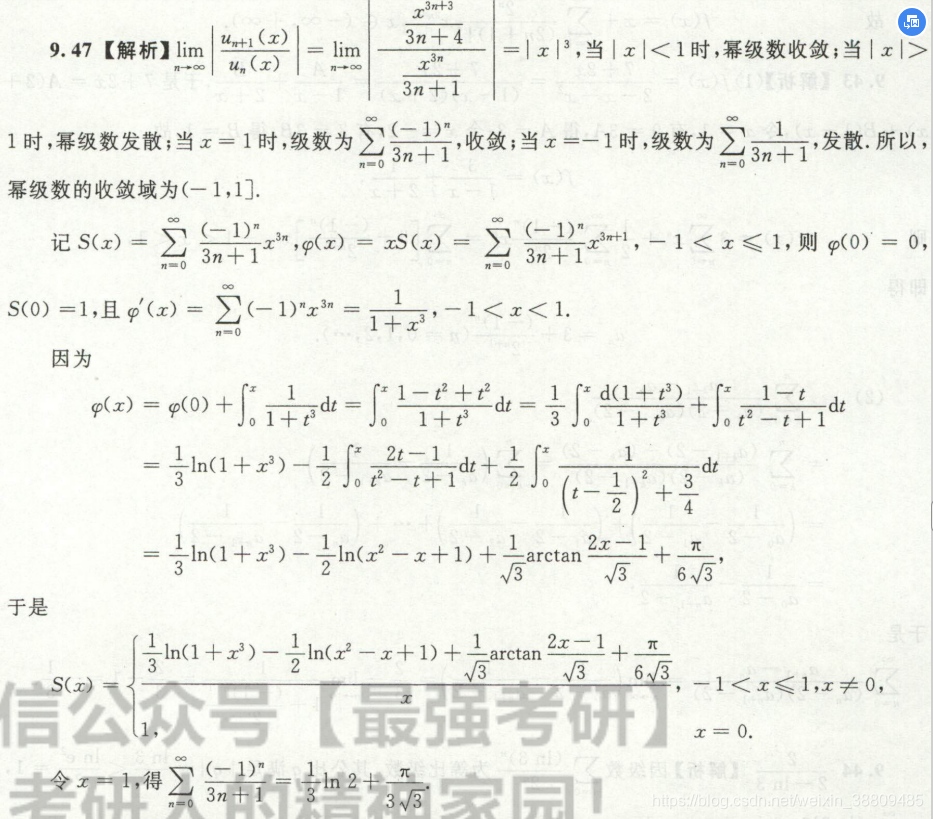 9.47 【解析】$\lim\limits_{n\to\infty}\left|\dfrac{u_{n+1}(x)}{u_n(x)}\right|=\lim\limits_{n\to\infty}\left|\dfrac{\dfrac{x^{3n+3}}{3n+4}}{\dfrac{x^{3n}}{3n+1}}\right|=|x|^3$,当$|x|<1$时,幂级数收敛;当$|x|>$
$1$时,幂级数发散;当$x=1$时,级数为$\sum\limits_{n=0}^{\infty}\dfrac{(-1)^n}{3n+1}$,收敛;当$x=-1$时,级数为$\sum\limits_{n=0}^{\infty}\dfrac{1}{3n+1}$,发散.所以,
幂级数的收敛域为$(-1,1]$.
记$S(x)=\sum\limits_{n=0}^{\infty}\dfrac{(-1)^n}{3n+1}x^{3n}$,$\varphi(x)=xS(x)=\sum\limits_{n=0}^{\infty}\dfrac{(-1)^n}{3n+1}x^{3n+1}$,$-1<x\leqslant 1$,则$\varphi(0)=0$,
$S(0)=1$,且$\varphi'(x)=\sum\limits_{n=0}^{\infty}(-1)^n x^{3n}=\dfrac{1}{1+x^3}$,$-1<x<1$.
因为
$\varphi(x)=\varphi(0)+\int_0^x\dfrac{1}{1+t^3}dt=\int_0^x\dfrac{1-t^2+t^2}{1+t^3}dt=\dfrac{1}{3}\int_0^x\dfrac{d(1+t^3)}{1+t^3}+\int_0^x\dfrac{1-t}{t^2-t+1}dt$
$=\dfrac{1}{3}\ln(1+x^3)-\dfrac{1}{2}\int_0^x\dfrac{2t-1}{t^2-t+1}dt+\dfrac{1}{2}\int_0^x\dfrac{1}{\left(t-\dfrac{1}{2}\right)^2+\dfrac{3}{4}}dt$
$=\dfrac{1}{3}\ln(1+x^3)-\dfrac{1}{2}\ln(x^2-x+1)+\dfrac{1}{\sqrt{3}}\arctan\dfrac{2x-1}{\sqrt{3}}+\dfrac{\pi}{6\sqrt{3}}$,
于是
$S(x)=\begin{cases}\dfrac{\dfrac{1}{3}\ln(1+x^3)-\dfrac{1}{2}\ln(x^2-x+1)+\dfrac{1}{\sqrt{3}}\arctan\dfrac{2x-1}{\sqrt{3}}+\dfrac{\pi}{6\sqrt{3}}}{x},&-1<x\leqslant 1,x\neq 0,\\1,&x=0.\end{cases}$
信公众号【最强考研】
令$x=1$,得$\sum\limits_{n=0}^{\infty}\dfrac{(-1)^n}{3n+1}=\dfrac{1}{3}\ln 2+\dfrac{\pi}{3\sqrt{3}}$.
考研人的精神家园!
https://blog.csdn.net/weixin_38809485